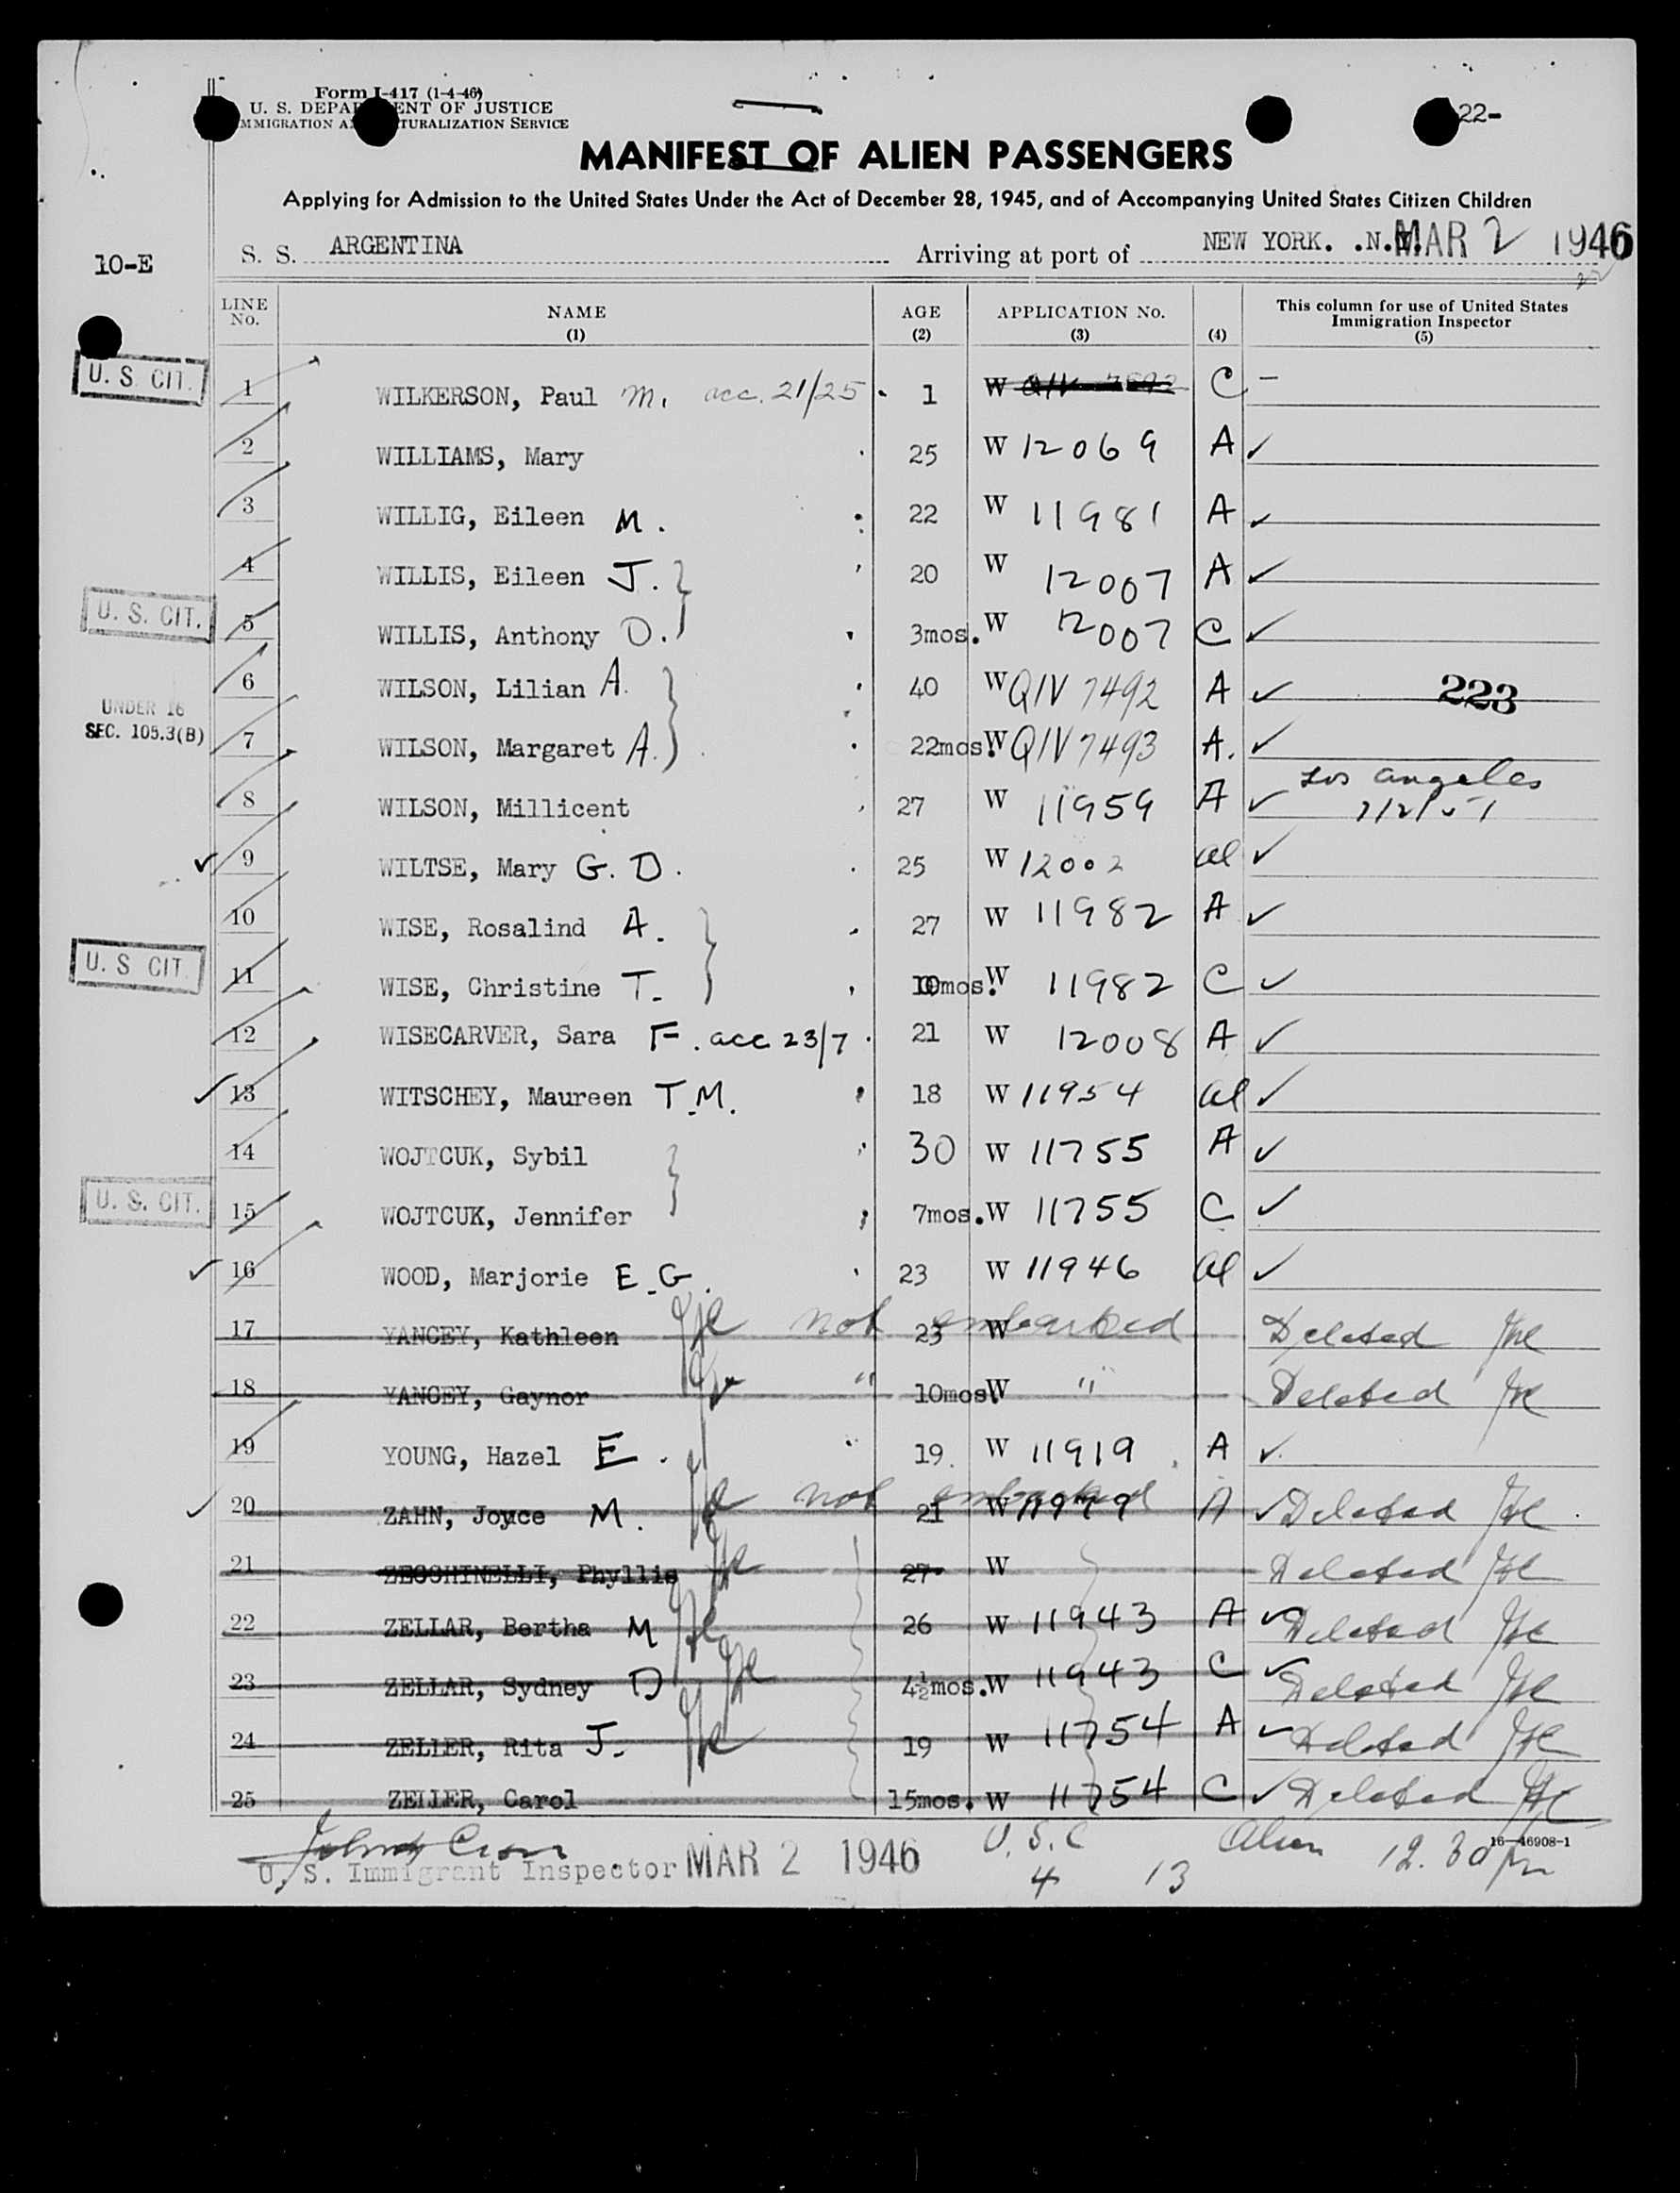 Form I-417 (1-4-46)
U. S. DEPARTMENT OF JUSTICE
IMMIGRATION AND NATURALIZATION SERVICE
22-
MANIFEST OF ALIEN PASSENGERS
Applying for Admission to the United States Under the Act of December 28, 1945, and of Accompanying United States Citizen Children
10-E
S. S. ARGENTINA Arriving at port of NEW YORK. .N.Y. MAR 2 1946
22
LINE No. NAME (1) AGE (2) APPLICATION No. (3) (4) This column for use of United States Immigration Inspector (5)
U. S. CIT. 1 WILKERSON, Paul M. acc. 21/25 1 W C –
2 WILLIAMS, Mary 25 W 12069 A ✓
3 WILLIG, Eileen M. 22 W 11981 A ✓
4 WILLIS, Eileen J. 20 W 12007 A ✓
U. S. CIT. 5 WILLIS, Anthony D. 3mos. W 12007 C ✓
6 WILSON, Lilian A. 40 W QIV 7492 A ✓ 223
UNDER 16 SEC. 105.3(B) 7 WILSON, Margaret A. 22mos. W QIV 7493 A. ✓
8 WILSON, Millicent 27 W 11959 A ✓ Los Angeles
✓ 9 WILTSE, Mary G. D. 25 W 12002 al ✓
10 WISE, Rosalind A. 27 W 11982 A ✓
U. S. CIT. 11 WISE, Christine T. 10mos. W 11982 C ✓
12 WISECARVER, Sara F. acc 23/7 21 W 12008 A ✓
✓ 13 WITSCHEY, Maureen T.M. 18 W 11954 al ✓
14 WOJTCUK, Sybil 30 W 11755 A ✓
U. S. CIT. 15 WOJTCUK, Jennifer 7mos. W 11755 C ✓
✓ 16 WOOD, Marjorie E.G. 23 W 11946 al ✓
17 YANCEY, Kathleen not embarked 23 W Deleted
18 YANCEY, Gaynor " 10mos. W " Deleted
19 YOUNG, Hazel E. 19. W 11919 A ✓
✓ 20 ZAHN, Joyce M. not embarked 21 W 11979 A ✓ Deleted
21 ZECCHINELLI, Phyllis 27 W Deleted
22 ZELLAR, Bertha M 26 W 11943 A ✓ Deleted
23 ZELLAR, Sydney D 4½mos. W 11943 C ✓ Deleted
24 ZELLER, Rita J. 19 W 11754 A ✓ Deleted
25 ZELLER, Carol 15mos. W 11754 C ✓ Deleted
16—46908-1
U. S. Immigrant Inspector MAR 2 1946 U.S.C Alien 12.30 pm
4 13